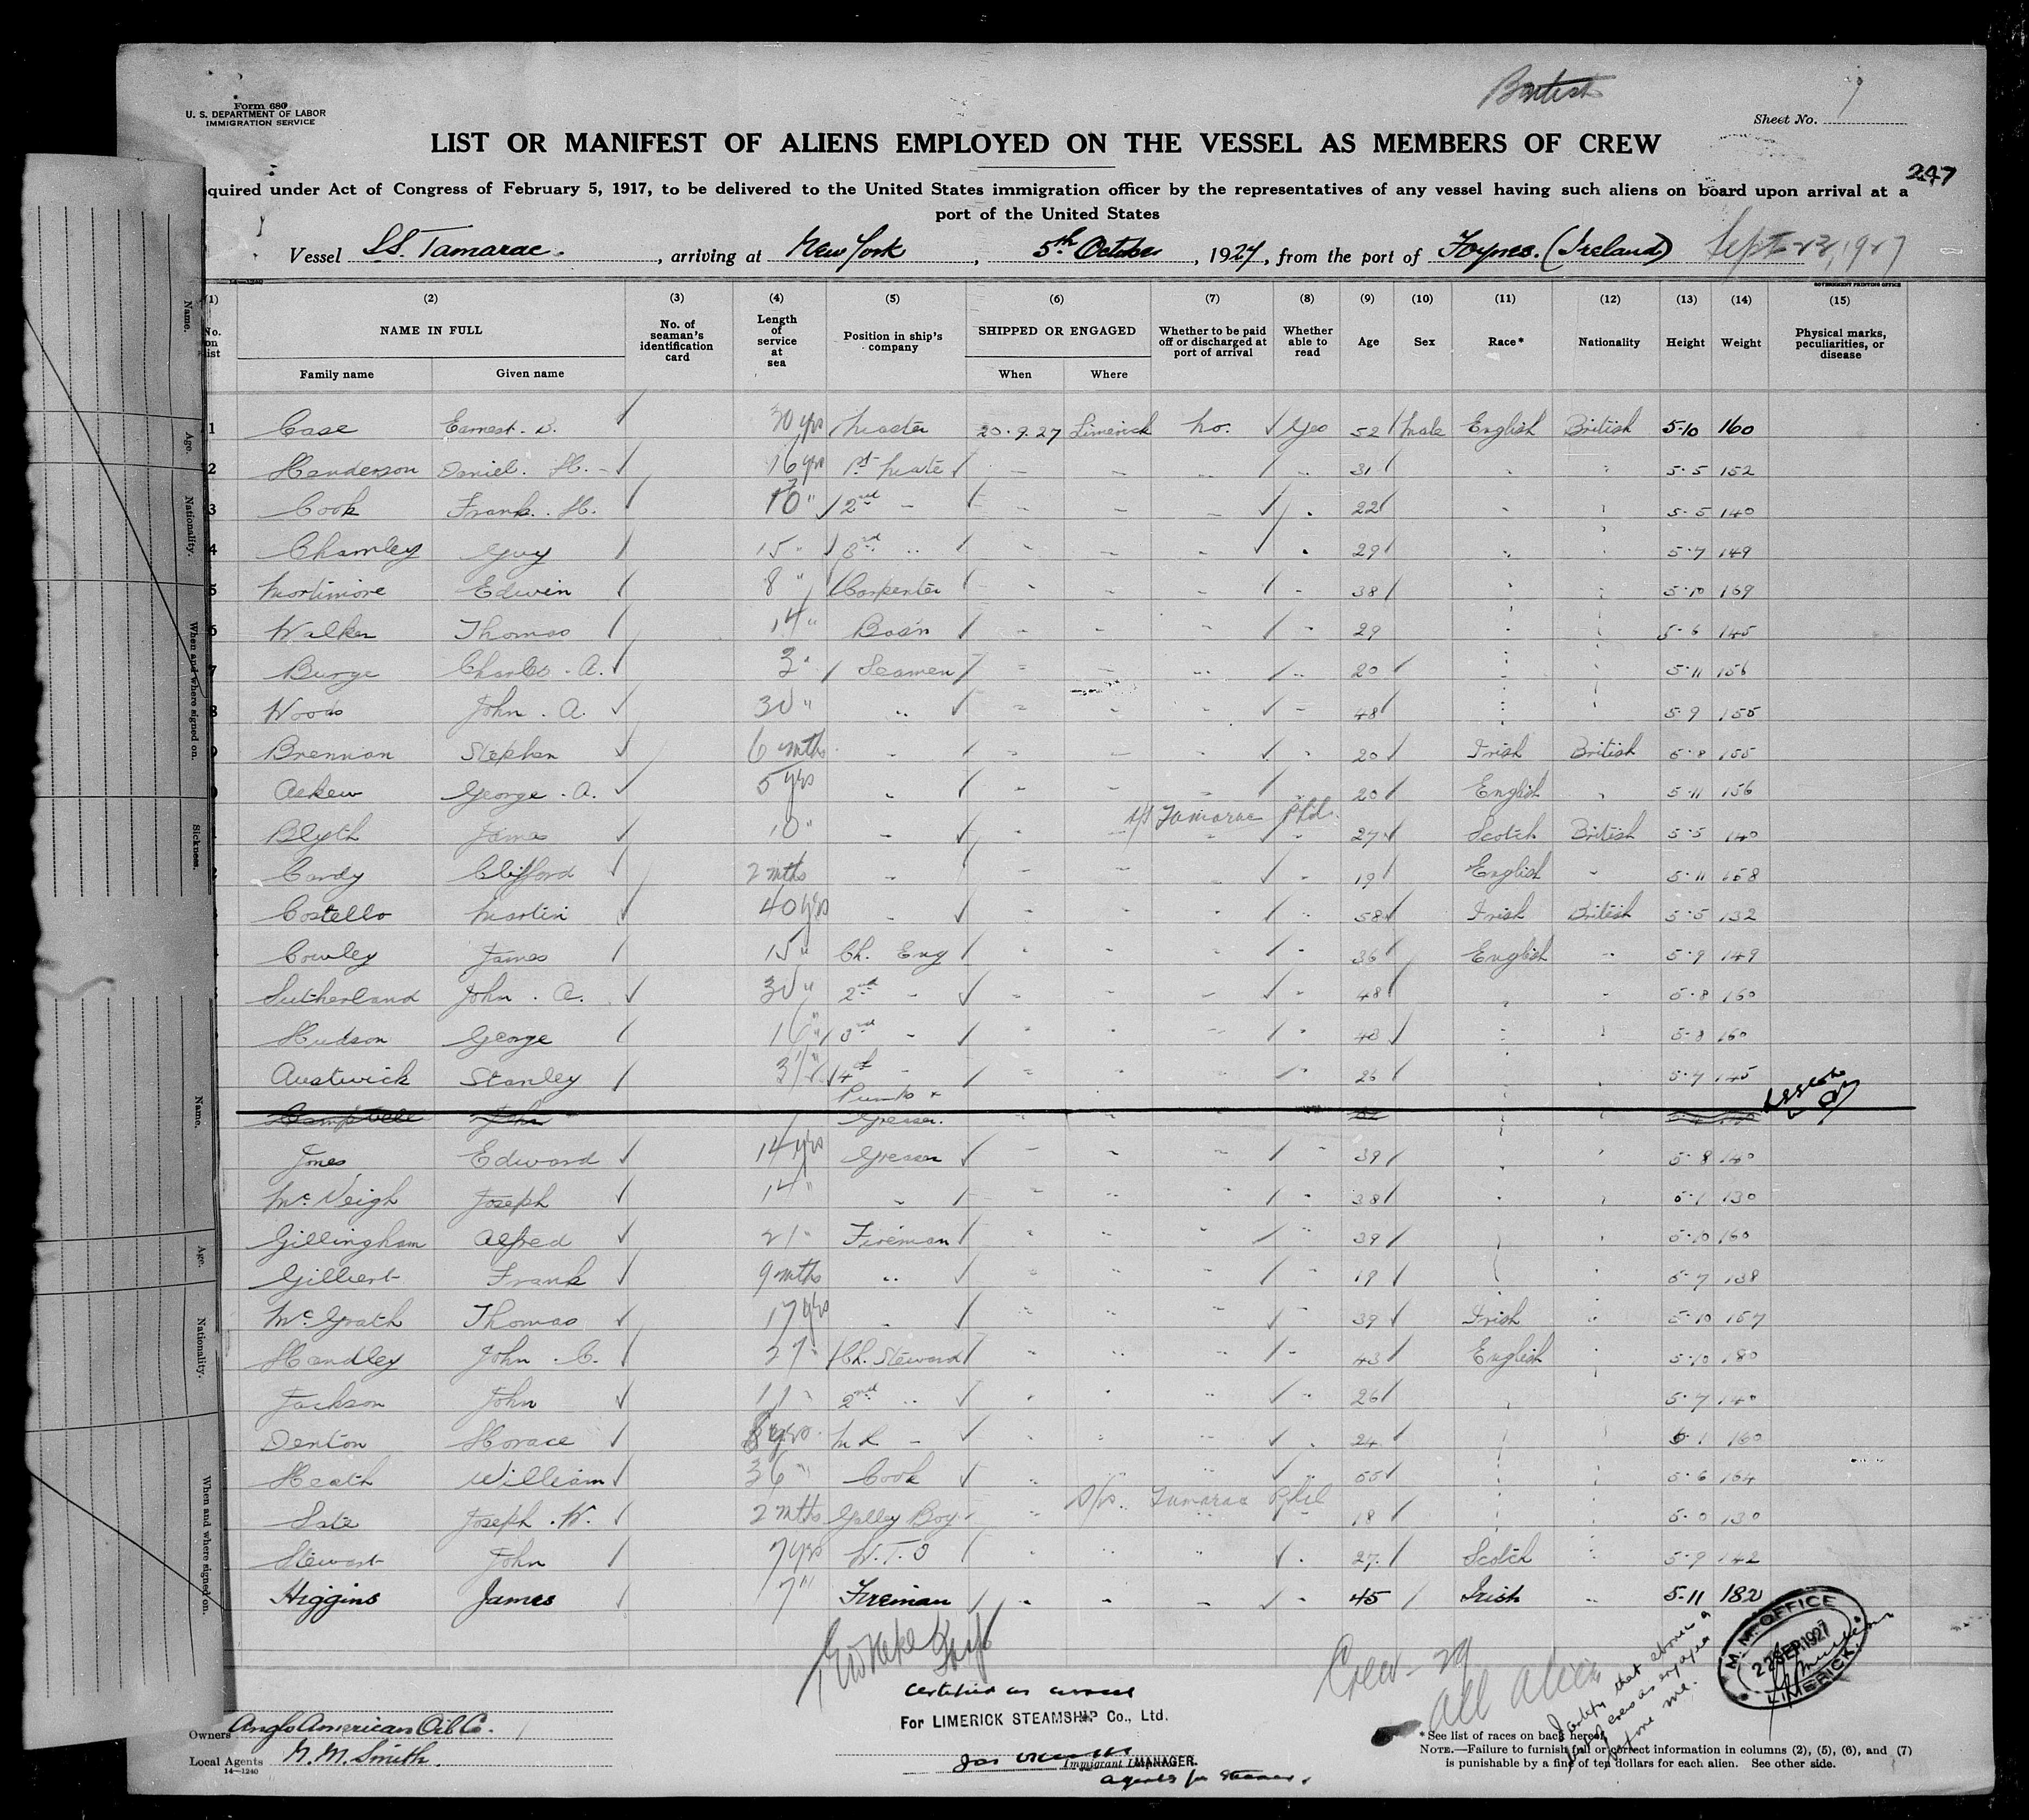 Form 680
U. S. DEPARTMENT OF LABOR
IMMIGRATION SERVICE
British
Sheet No. 1
LIST OR MANIFEST OF ALIENS EMPLOYED ON THE VESSEL AS MEMBERS OF CREW
247
quired under Act of Congress of February 5, 1917, to be delivered to the United States immigration officer by the representatives of any vessel having such aliens on board upon arrival at a
port of the United States
Vessel SS. Tamarac. , arriving at New York , 5th October , 1927, from the port of Foynes. (Ireland) Sept 23, 1927
14—1240 GOVERNMENT PRINTING OFFICE
(1) (2) (3) (4) (5) (6) (7) (8) (9) (10) (11) (12) (13) (14) (15)
No. on list NAME IN FULL No. of seaman's identification card Length of service at sea Position in ship's company SHIPPED OR ENGAGED Whether to be paid off or discharged at port of arrival Whether able to read Age Sex Race* Nationality Height Weight Physical marks, peculiarities, or disease
Family name Given name When Where
1 Case Earnest. B. 30 yrs Master 20.9.27 Limerick No. Yes 52 Male English British 5-10 160
2 Henderson Daniel. H. 16 yrs 1st Mate 31 5-5 152
3 Cook Frank. H. 2nd 22 5-5 140
4 Chamley Guy 15 " 3rd 29 5-7 149
5 Mortimore Edwin 8 " Carpenter 38 5-10 169
6 Walker Thomas 14 " Bos'n 29 5-6 145
7 Burge Charles. A. 3 " Seamen 20 5-11 156
8 Woods John. A. 30 " 48 5-9 155
9 Brennan Stephen 6 mths 20 Irish British 5-8 155
Askew George. A. 5 yrs 20 English 5-11 156
S/S Tamarac Phil.
Blyth James 10 " 27 Scotch British 5-5 140
Cardy Clifford 2 mths 19 English 5-11 158
Costello Martin 40 yrs 58 Irish British 5-5 132
Cowley James 15 " Ch. Eng 36 English 5-9 149
Sutherland John. A. 30 " 2nd 48 5-8 160
Hudson George 16 " 3rd 40 5-8 160
Austwick Stanley 4th 26 5-7 145
Campbell John Greaser.
Jones Edward 14 yrs Greaser 39 5-8 140
McVeigh Joseph 14 " 38 130
Gillingham Alfred 21 " Fireman 39 5-10 160
Gilbert Frank 9 mths 19 5-7 138
McGrath Thomas 17 yrs 39 Irish 5-10 157
Handley John. C. 27 Ch. Steward 43 English 5-10 180
Jackson John 11 " 2nd 26 5-7 140
Denton Horace 24 160
Heath William 36 " Cook 55 5-6 164
S/S. Tamarac Phil
Joseph. W. 2 mths Galley Boy 18 5-0 130
Stewart John 7 yrs W.T.O 27 Scotch 5-9 142
Higgins James 7 " Fireman 45 Irish 5-11 182
Crew - 29
all alien
I certify that above is a
before me.
M. M. OFFICE
22 SEP. 1927
LIMERICK.
Certified as correct
For LIMERICK STEAMSHIP Co., Ltd.
MANAGER.
agents for Steamer.
Owners Anglo American Oil Co.
Local Agents N. M. Smith.
14—1240
*See list of races on back hereof.
NOTE.—Failure to furnish full or correct information in columns (2), (5), (6), and (7)
is punishable by a fine of ten dollars for each alien. See other side.
Name.
Age.
Nationality.
When and where signed on.
Sickness.
Name.
Age.
Nationality.
When and where signed on.